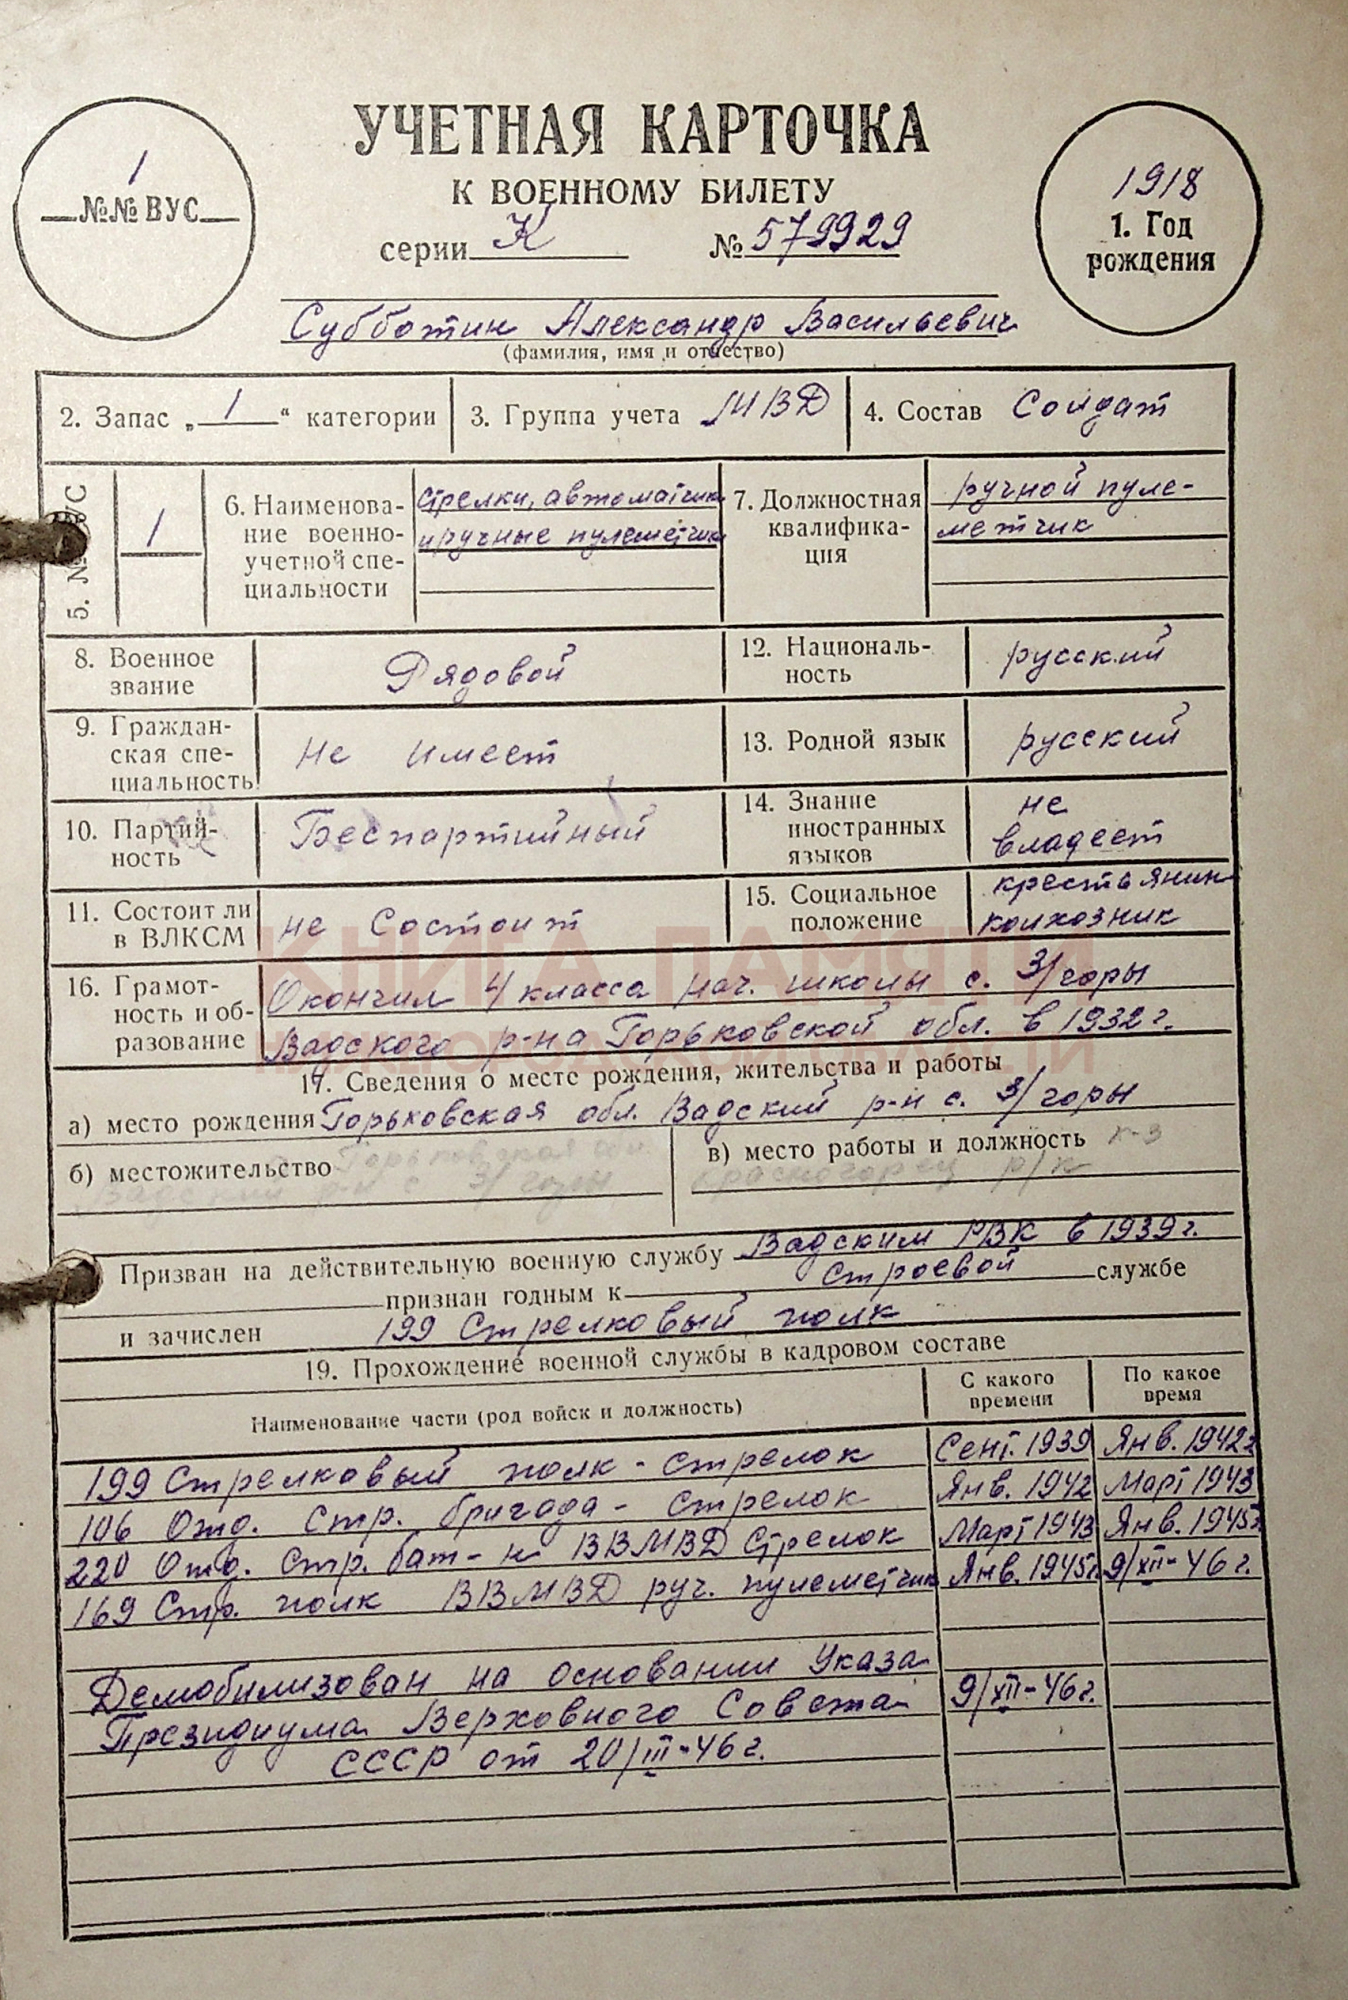 УЧЕТНАЯ КАРТОЧКА
К ВОЕННОМУ БИЛЕТУ
серии К № 579929
1
№№ ВУС
1918
1. Год
рождения
Субботин Александр Васильевич
(фамилия, имя и отчество)
2. Запас „ 1 “ категории
3. Группа учета МВД
4. Состав Солдат
5. № ВУС
1
6. Наименова-
ние военно-
учетной спе-
циальности
стрелки, автоматчики
и ручные пулеметчики
7. Должностная
квалифика-
ция
ручной пуле-
метчик
8. Военное
звание
Рядовой
12. Националь-
ность
русский
9. Граждан-
ская спе-
циальность
Не имеет
13. Родной язык
русский
10. Партий-
ность
Беспартийный
14. Знание
иностранных
языков
не
владеет
11. Состоит ли
в ВЛКСМ
не состоит
15. Социальное
положение
крестьянин
колхозник
КНИГА ПАМЯТИ
НИЖЕГОРОДСКОЙ ОБЛАСТИ
16. Грамот-
ность и об-
разование
Окончил 4 класса нач. школы с. З/горы
Вадского р-на Горьковской обл. в 1932 г.
17. Сведения о месте рождения, жительства и работы
а) место рождения Горьковская обл. Вадский р-н с. З/горы
б) местожительство Горьковская обл.
Вадский р-н с З/горы
в) место работы и должность к-з
Красногорец р/к
Призван на действительную военную службу Вадским РВК в 1939 г.
признан годным к строевой службе
и зачислен 199 Стрелковый полк
19. Прохождение военной службы в кадровом составе
Наименование части (род войск и должность)
С какого
времени
По какое
время
199 Стрелковый полк - стрелок Сент. 1939 Янв. 1942 г
106 Отд. Стр. бригада - стрелок Янв. 1942 Март 1943
220 Отд. стр. бат-н ВВМВД Стрелок Март 1943 Янв. 1945 г
169 Стр. полк ВВМВД руч. пулеметчик Янв. 1945 г. 9/XII-46 г.
Демобилизован на основании Указа
Президиума Верховного Совета 9/XII-46 г.
СССР от 20/III-46 г.